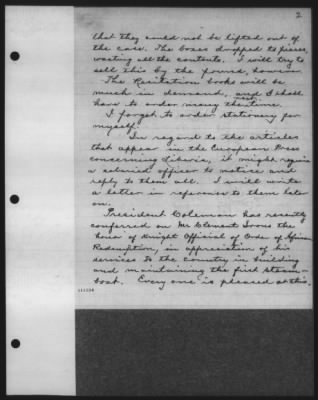 2
that they could not be lifted out of
the case. The boxes dropped to pieces,
wasting all the contents. I will try to
sell this by the pound, however.
The Recitation books will be
much in demand, and I shall
have to order many the next time.
I forgot to order stationery for
myself.
In regard to the articles
that appear in the European Press
concerning Liberia, it might require
a salaried officer to notice and
reply to them all. I will write
a letter in reference to them later
on.
President Coleman has recently
conferred on Mr Clement Irons the
honor of Knight Official of Order of African
Redemption, in appreciation of his
services to the country in building
and maintaining the first steam-
boat. Every one is pleased at this.